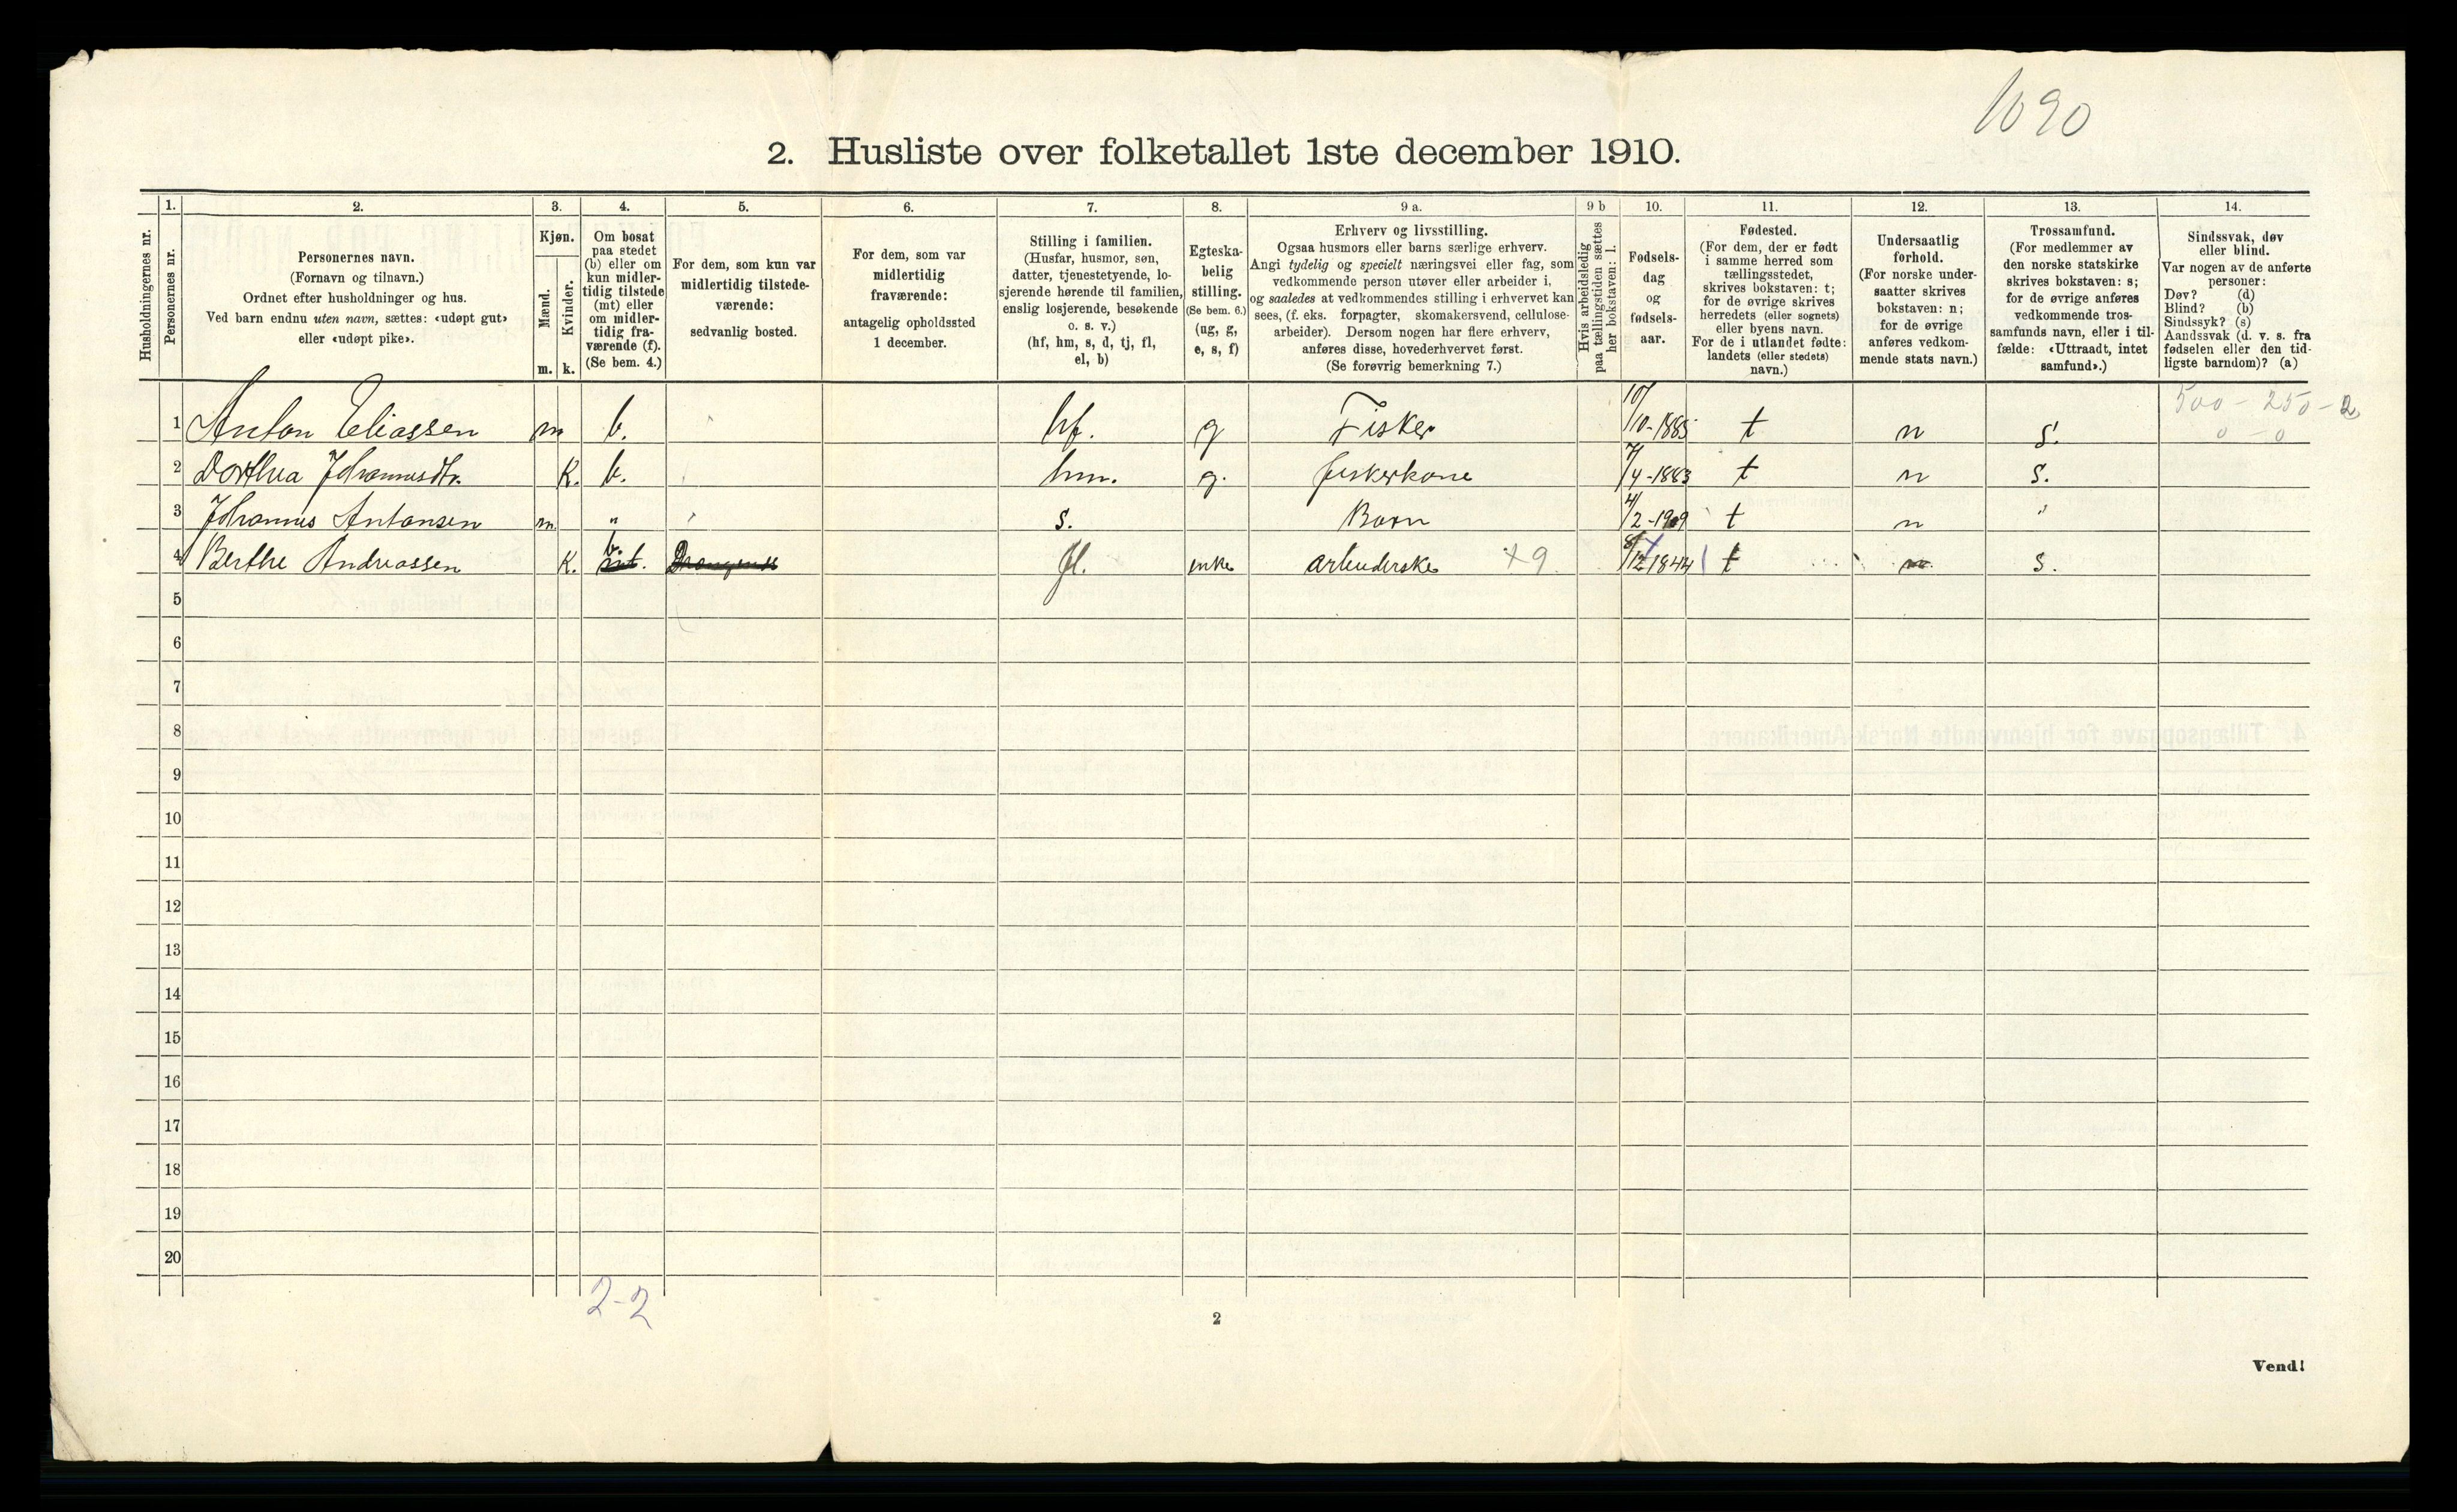 1090
2. Husliste over folketallet 1ste december 1910.
Husholdningernes nr.
1.
Personernes nr.
2.
Personernes navn.
(Fornavn og tilnavn.)
Ordnet efter husholdninger og hus.
Ved barn endnu uten navn, sættes: «udøpt gut»
eller «udøpt pike».
3.
Kjøn.
Mænd.
Kvinder.
m. k.
4.
Om bosat
paa stedet
(b) eller om
kun midler-
tidig tilstede
(mt) eller
om midler-
tidig fra-
værende (f).
(Se bem. 4.)
5.
For dem, som kun var
midlertidig tilstede-
værende:
sedvanlig bosted.
6.
For dem, som var
midlertidig
fraværende:
antagelig opholdssted
1 december.
7.
Stilling i familien.
(Husfar, husmor, søn,
datter, tjenestetyende, lo-
sjerende hørende til familien,
enslig losjerende, besøkende
o. s. v.)
(hf, hm, s, d, tj, fl,
el, b)
8.
Egteska-
belig
stilling.
(Se bem. 6.)
(ug, g,
e, s, f)
9 a.
Erhverv og livsstilling.
Ogsaa husmors eller barns særlige erhverv.
Angi tydelig og specielt næringsvei eller fag, som
vedkommende person utøver eller arbeider i,
og saaledes at vedkommendes stilling i erhvervet kan
sees, (f. eks. forpagter, skomakersvend, cellulose-
arbeider). Dersom nogen har flere erhverv,
anføres disse, hovederhvervet først.
(Se forøvrig bemerkning 7.)
9 b
Hvis arbeidsledig
paa tællingstiden sættes
her bokstaven: l.
10.
Fødsels-
dag
og
fødsels-
aar.
11.
Fødested.
(For dem, der er født
i samme herred som
tællingsstedet,
skrives bokstaven: t;
for de øvrige skrives
herredets (eller sognets)
eller byens navn.
For de i utlandet fødte:
landets (eller stedets)
navn.)
12.
Undersaatlig
forhold.
(For norske under-
saatter skrives
bokstaven: n;
for de øvrige
anføres vedkom-
mende stats navn.)
13.
Trossamfund.
(For medlemmer av
den norske statskirke
skrives bokstaven: s;
for de øvrige anføres
vedkommende tros-
samfunds navn, eller i til-
fælde: «Uttraadt, intet
samfund».)
14.
Sindssvak, døv
eller blind.
Var nogen av de anførte
personer:
Døv? (d)
Blind? (b)
Sindssyk? (s)
Aandssvak (d. v. s. fra
fødselen eller den tid-
ligste barndom)? (a)
500 - 250 - 2
0 - 0
1 Anton Eliassen m b. hf. g Fisker 10/10-1885 t n s.
2 Dorthea Johannesdtr. K. b. hm. g. fiskerkone 7/4-1883 t n s.
3 Johannes Antonsen m. " s. Barn 4/2-1909 t n "
4 Berthe Andreassen K. b. mt. fl. enke arbeiderske +9 8/12 1844 t n. s.
5
6
7
8
9
10
11
12
13
14
15
16
17
18
19
20
2-2
2
Vend!